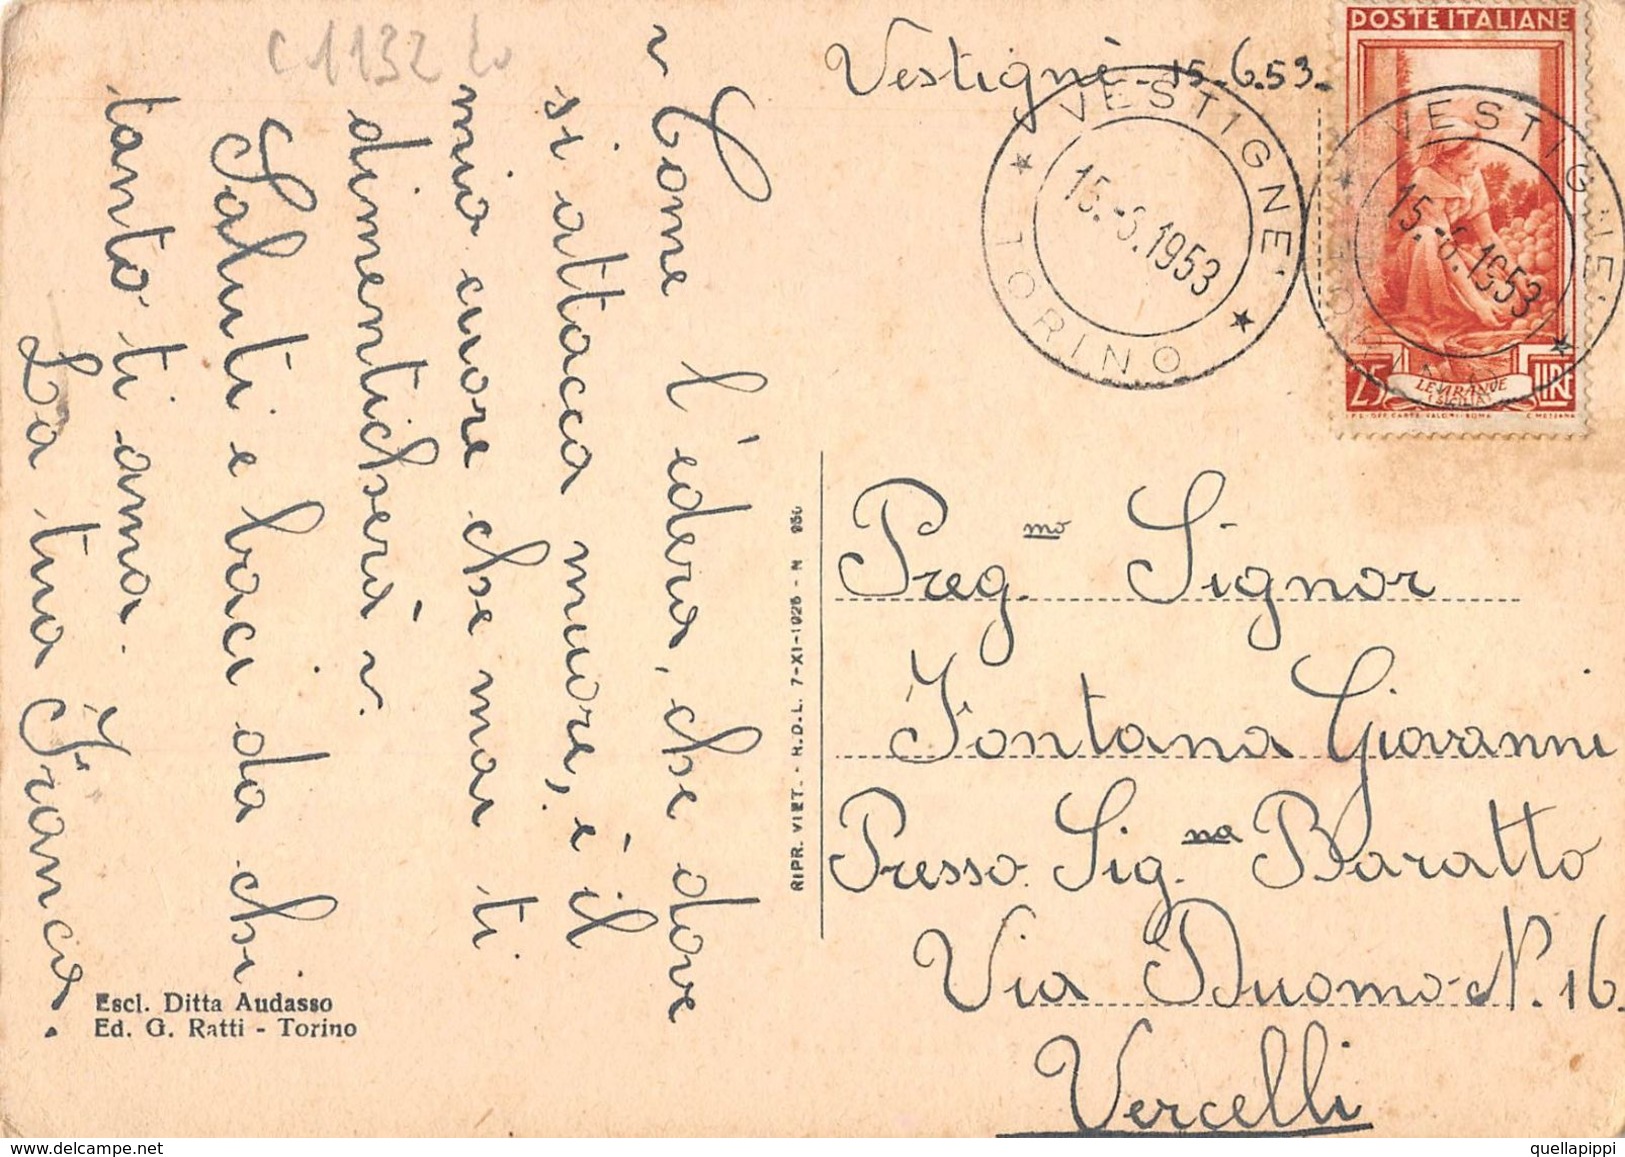 C1132
Vestignè-15-6.53-
POSTE ITALIANE
VESTIGNE'
15.-6.1953
TORINO
VESTIGNE'
15.-6.1953
25 LE ARANCE LIRE
I.P.S.-OFF. CARTE-VALORI-ROMA C. MEZZANA
" Come l'edera, che dove
si attacca muore, è il
mio cuore che mai ti
dimenticherà ".
Saluti e baci da chi
tanto ti ama.
La tua Franca.
Escl. Ditta Audasso
Ed. G. Ratti - Torino
RIPR. VIET. - R.D.L. 7-XI-1925 - N 950
Preg.mo Signor
Fontana Giovanni
Presso Sig.na Baratto
Via Duomo-N.16
Vercelli
quellapippi